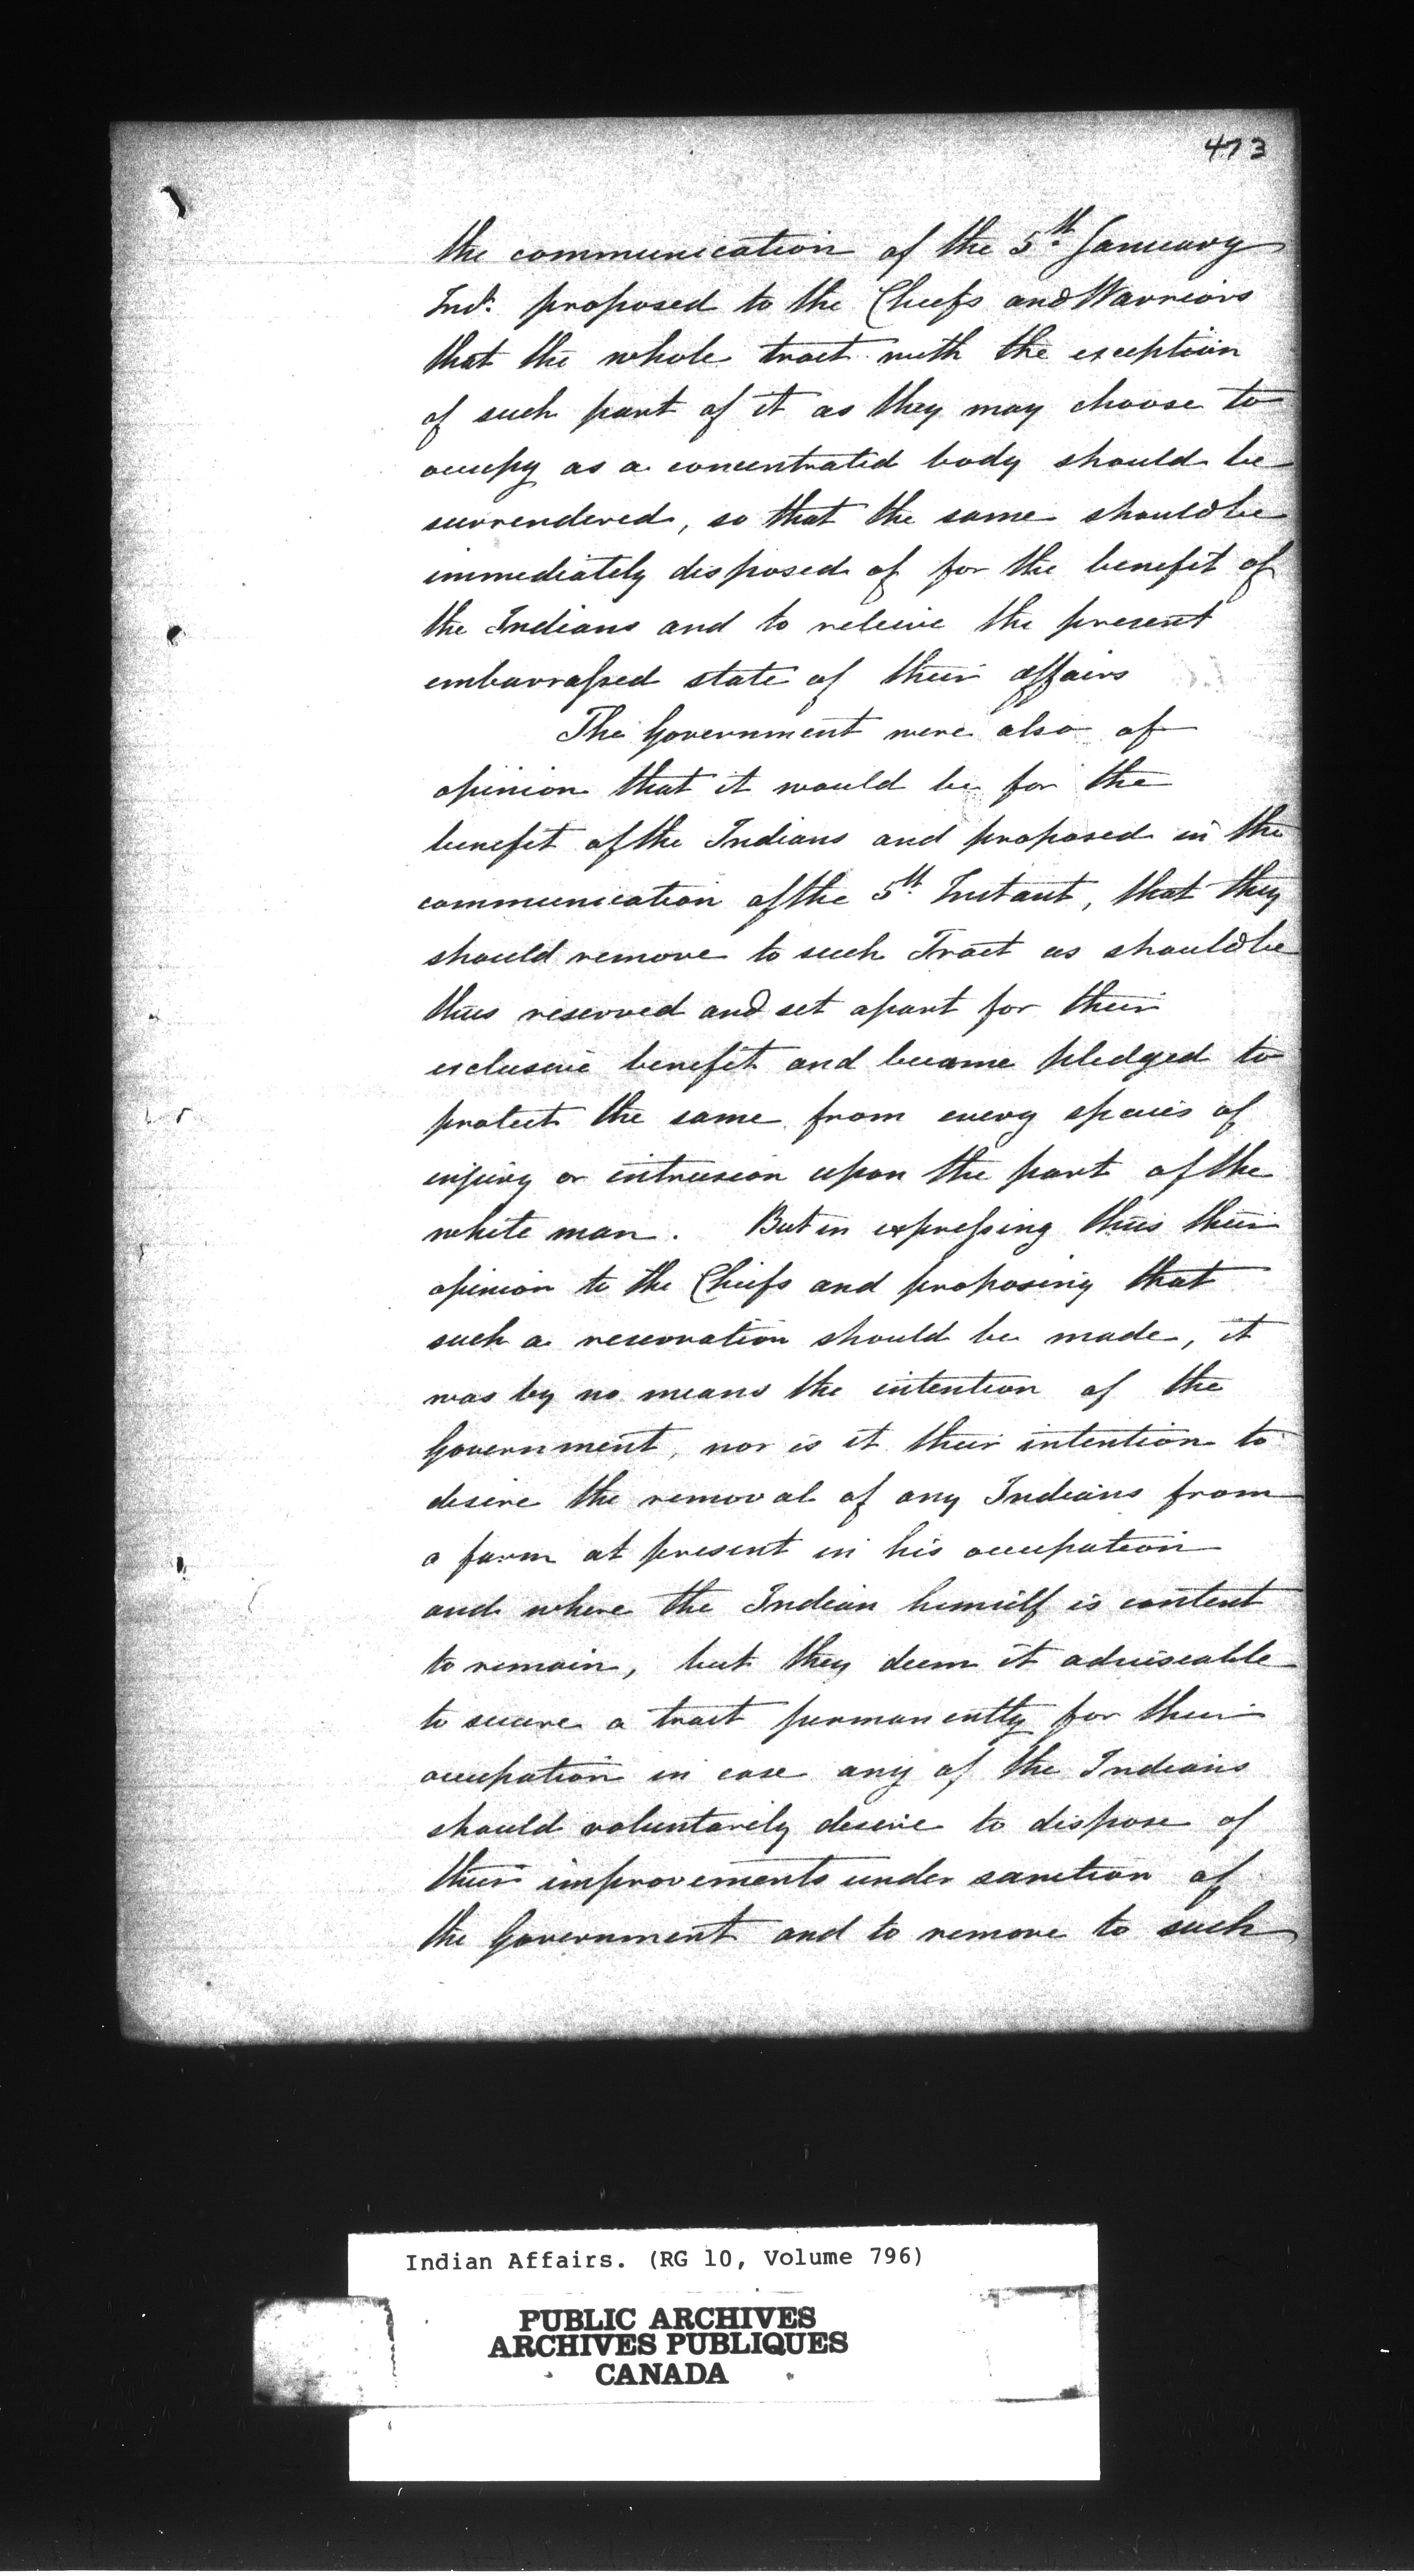 473
the communication of the 5th January
Ind. proposed to the Chiefs and Warriors
that the whole tract with the exception
of such part of it as they may choose to
occupy as a concentrated body should be
surrendered, so that the same should be
immediately disposed of for the benefit of
the Indians and to releive the present
embarrassed state of their affairs
The Government were also of
opinion that it would be for the
benefit of the Indians and proposed in the
communication of the 5th Instant, that they
should remove to such Tract as should be
thus reserved and set apart for their
exclusive benefit and became pledged to
protect the same from every species of
injury or intrusion upon the part of the
white man. But in expressing thus their
opinion to the Chiefs and proposing that
such a reservation should be made, it
was by no means the intention of the
Government, nor is it their intention to
desire the removal of any Indians from
a farm at present in his occupation
and where the Indian himself is content
to remain, but they deem it adviseable
to secure a tract permanently for their
occupation in case any of the Indians
should voluntarily desire to dispose of
their improvements under sanction of
the Government and to remove to such
Indian Affairs. (RG 10, Volume 796)
PUBLIC ARCHIVES
ARCHIVES PUBLIQUES
CANADA